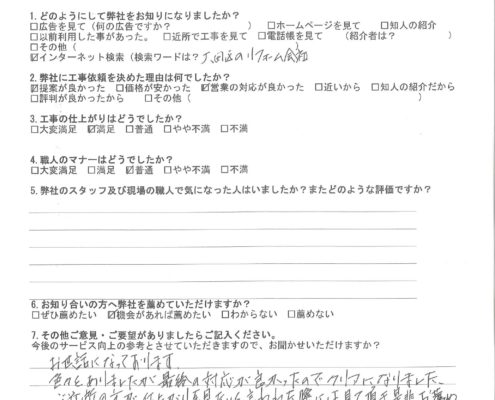 1. どのようにして弊社をお知りになりましたか?
□広告を見て (何の広告ですか? ) □ホームページを見て □知人の紹介
□以前利用した事があった。 □近所で工事を見て □電話帳を見て (紹介者は? )
□その他(
☑インターネット検索 (検索ワードは? 大田区のリフォーム会社
2. 弊社に工事依頼を決めた理由は何でしたか?
☑提案が良かった □価格が安かった ☑営業の対応が良かった □近いから □知人の紹介だから
□評判が良かったから □その他 ( )
3. 工事の仕上がりはどうでしたか?
□大変満足 ☑満足 □普通 □やや不満 □不満
4. 職人のマナーはどうでしたか?
□大変満足 □満足 ☑普通 □やや不満 □不満
5. 弊社のスタッフ及び現場の職人で気になった人はいましたか?またどのような評価ですか?
6. お知り合いの方へ弊社を薦めていただけますか?
□ぜひ薦めたい ☑機会があれば薦めたい □わからない □薦めない
7. その他ご意見・ご要望がありましたらご記入ください。
今後のサービス向上の参考とさせていただきますので、お聞かせいただけますか?
お世話になっております
色々とありましたが最後の対応が良かったのでクリアになりました、